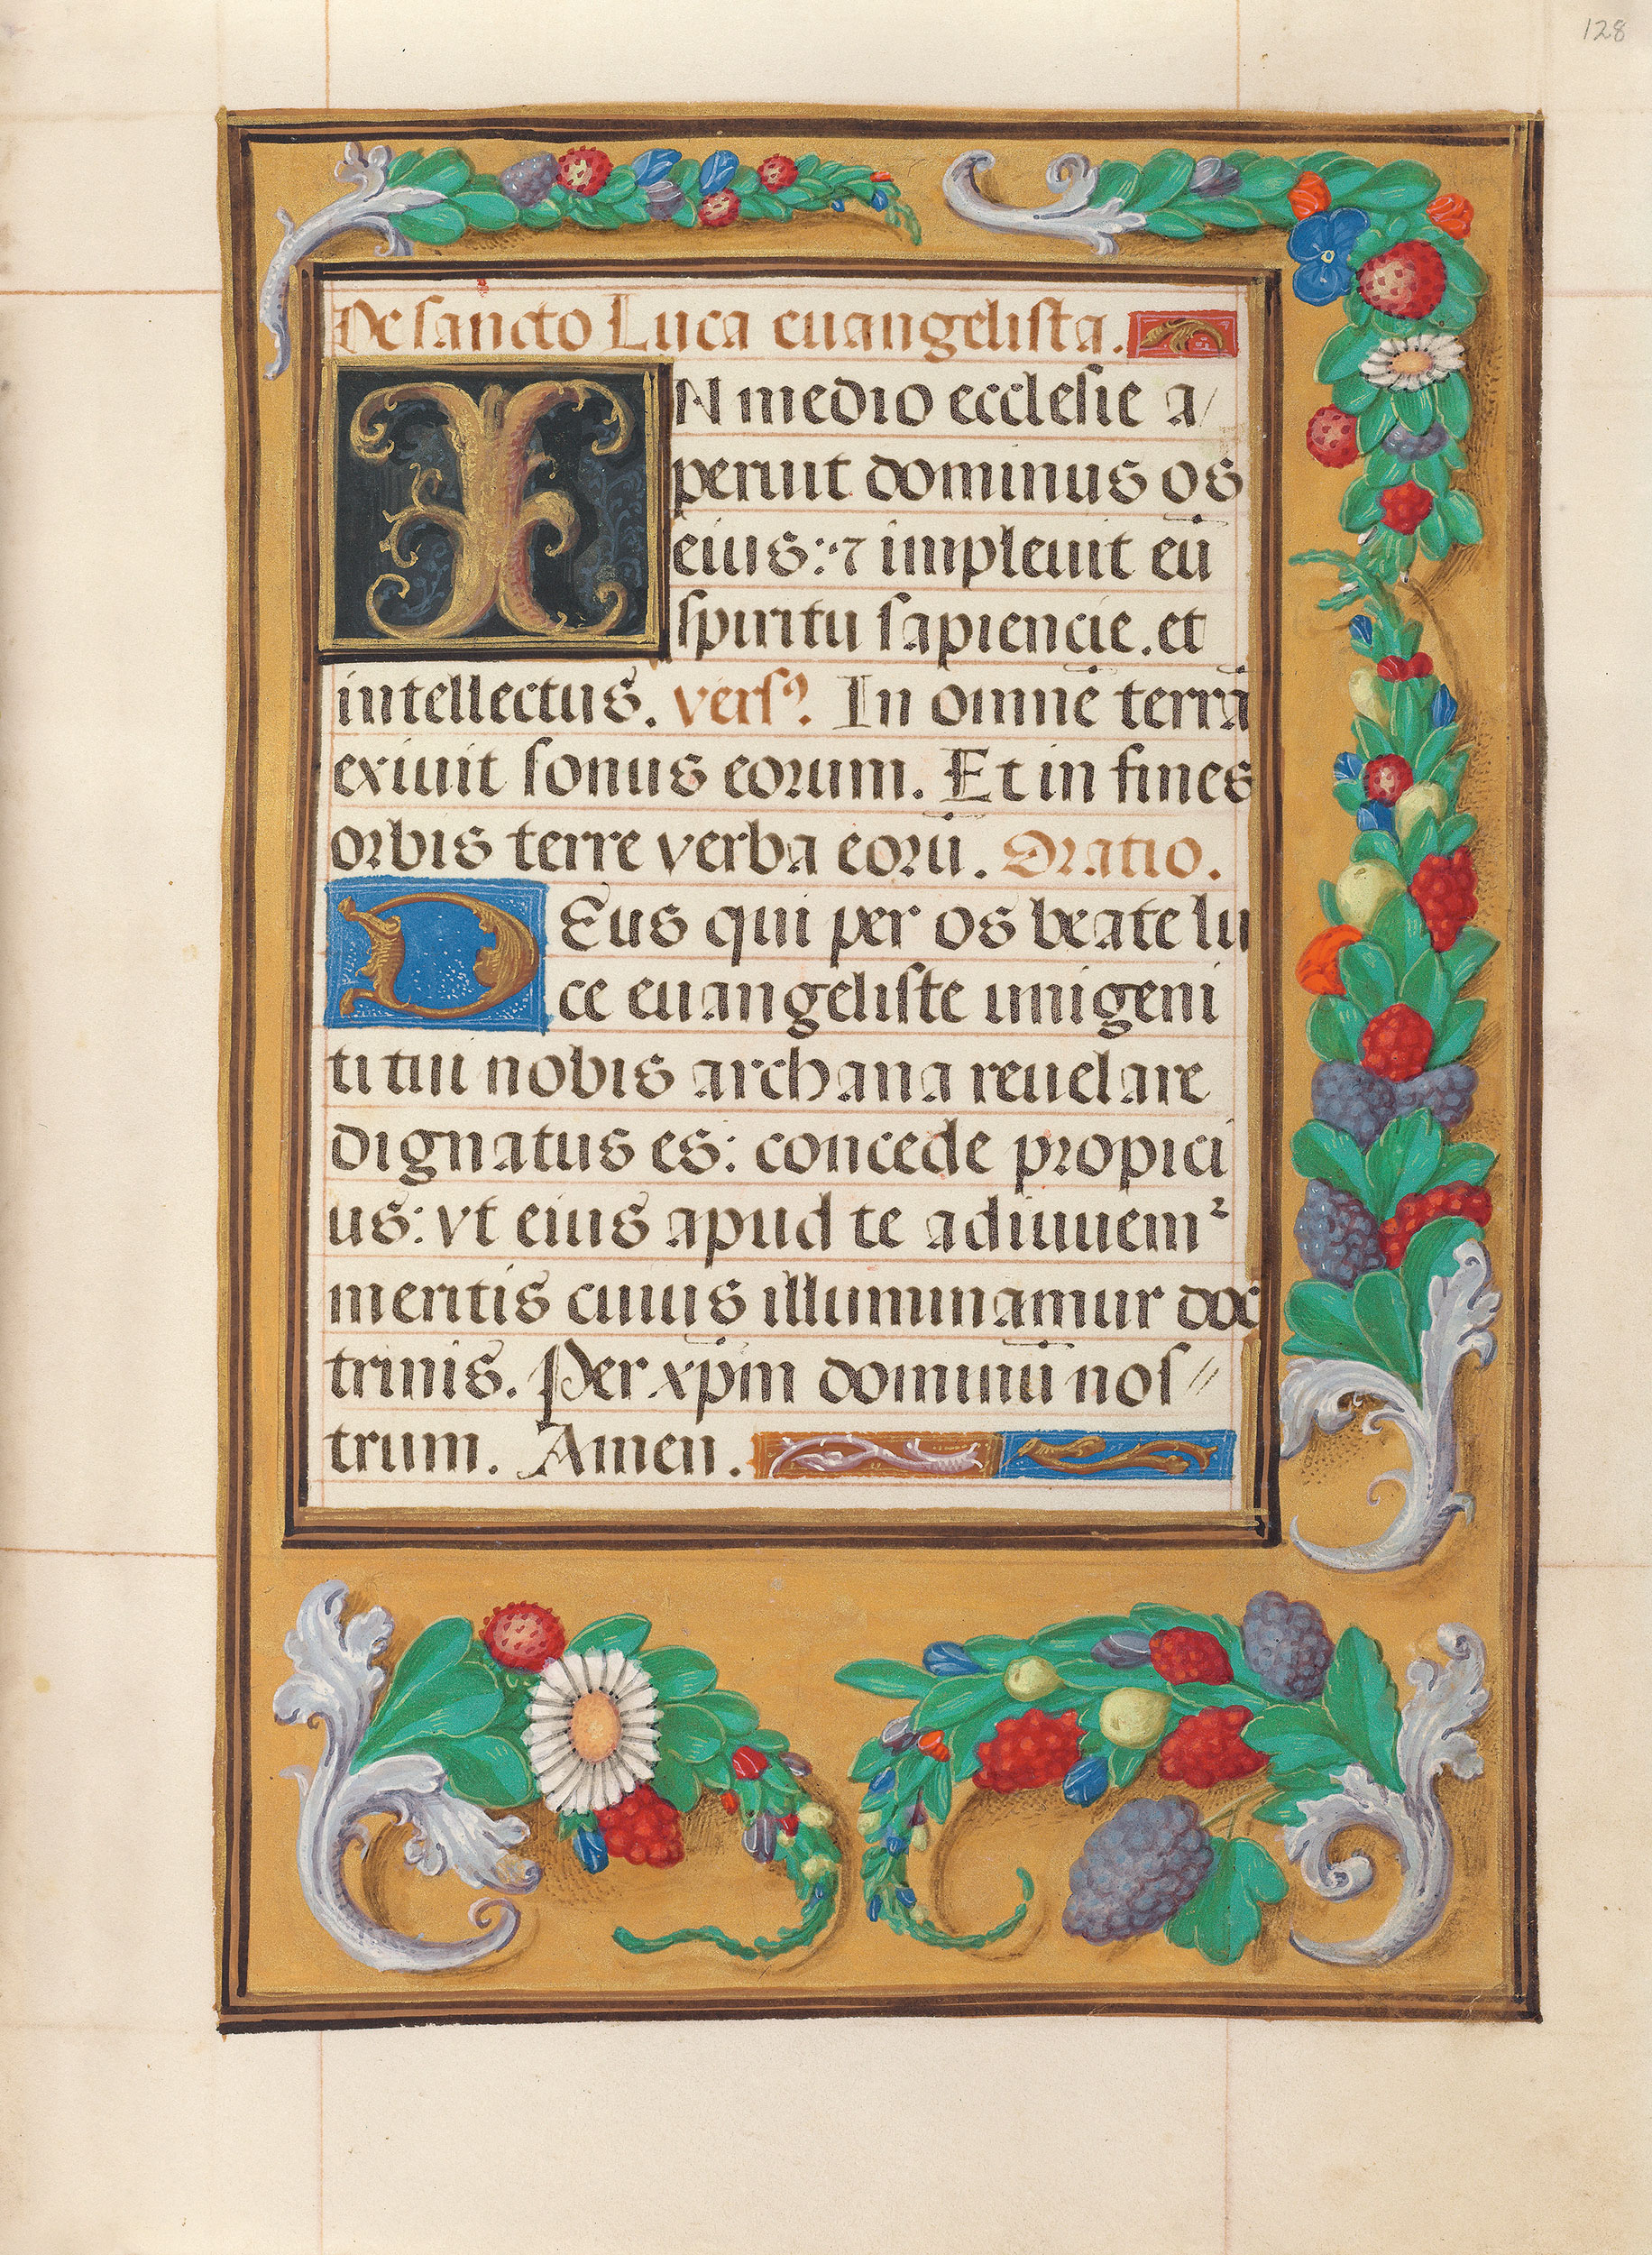 128
De sancto Luca euangelista.
IN medio ecclesie a/
peruit dominus os
eius: ⁊ impleuit eū
spiritu sapiencie. et
intellectus. versꝰ. In omnē terrā
exiuit sonus eorum. Et in fines
orbis terre verba eorū. Oratio.
DEus qui per os beate lu
ce euangeliste unigeni
ti tui nobis archana reuelare
dignatus es: concede propici
us: vt eius apud te adiuuem²
meritis cuius illuminamur doc
trinis. Per xp̄m dominū nos//
trum. Amen.